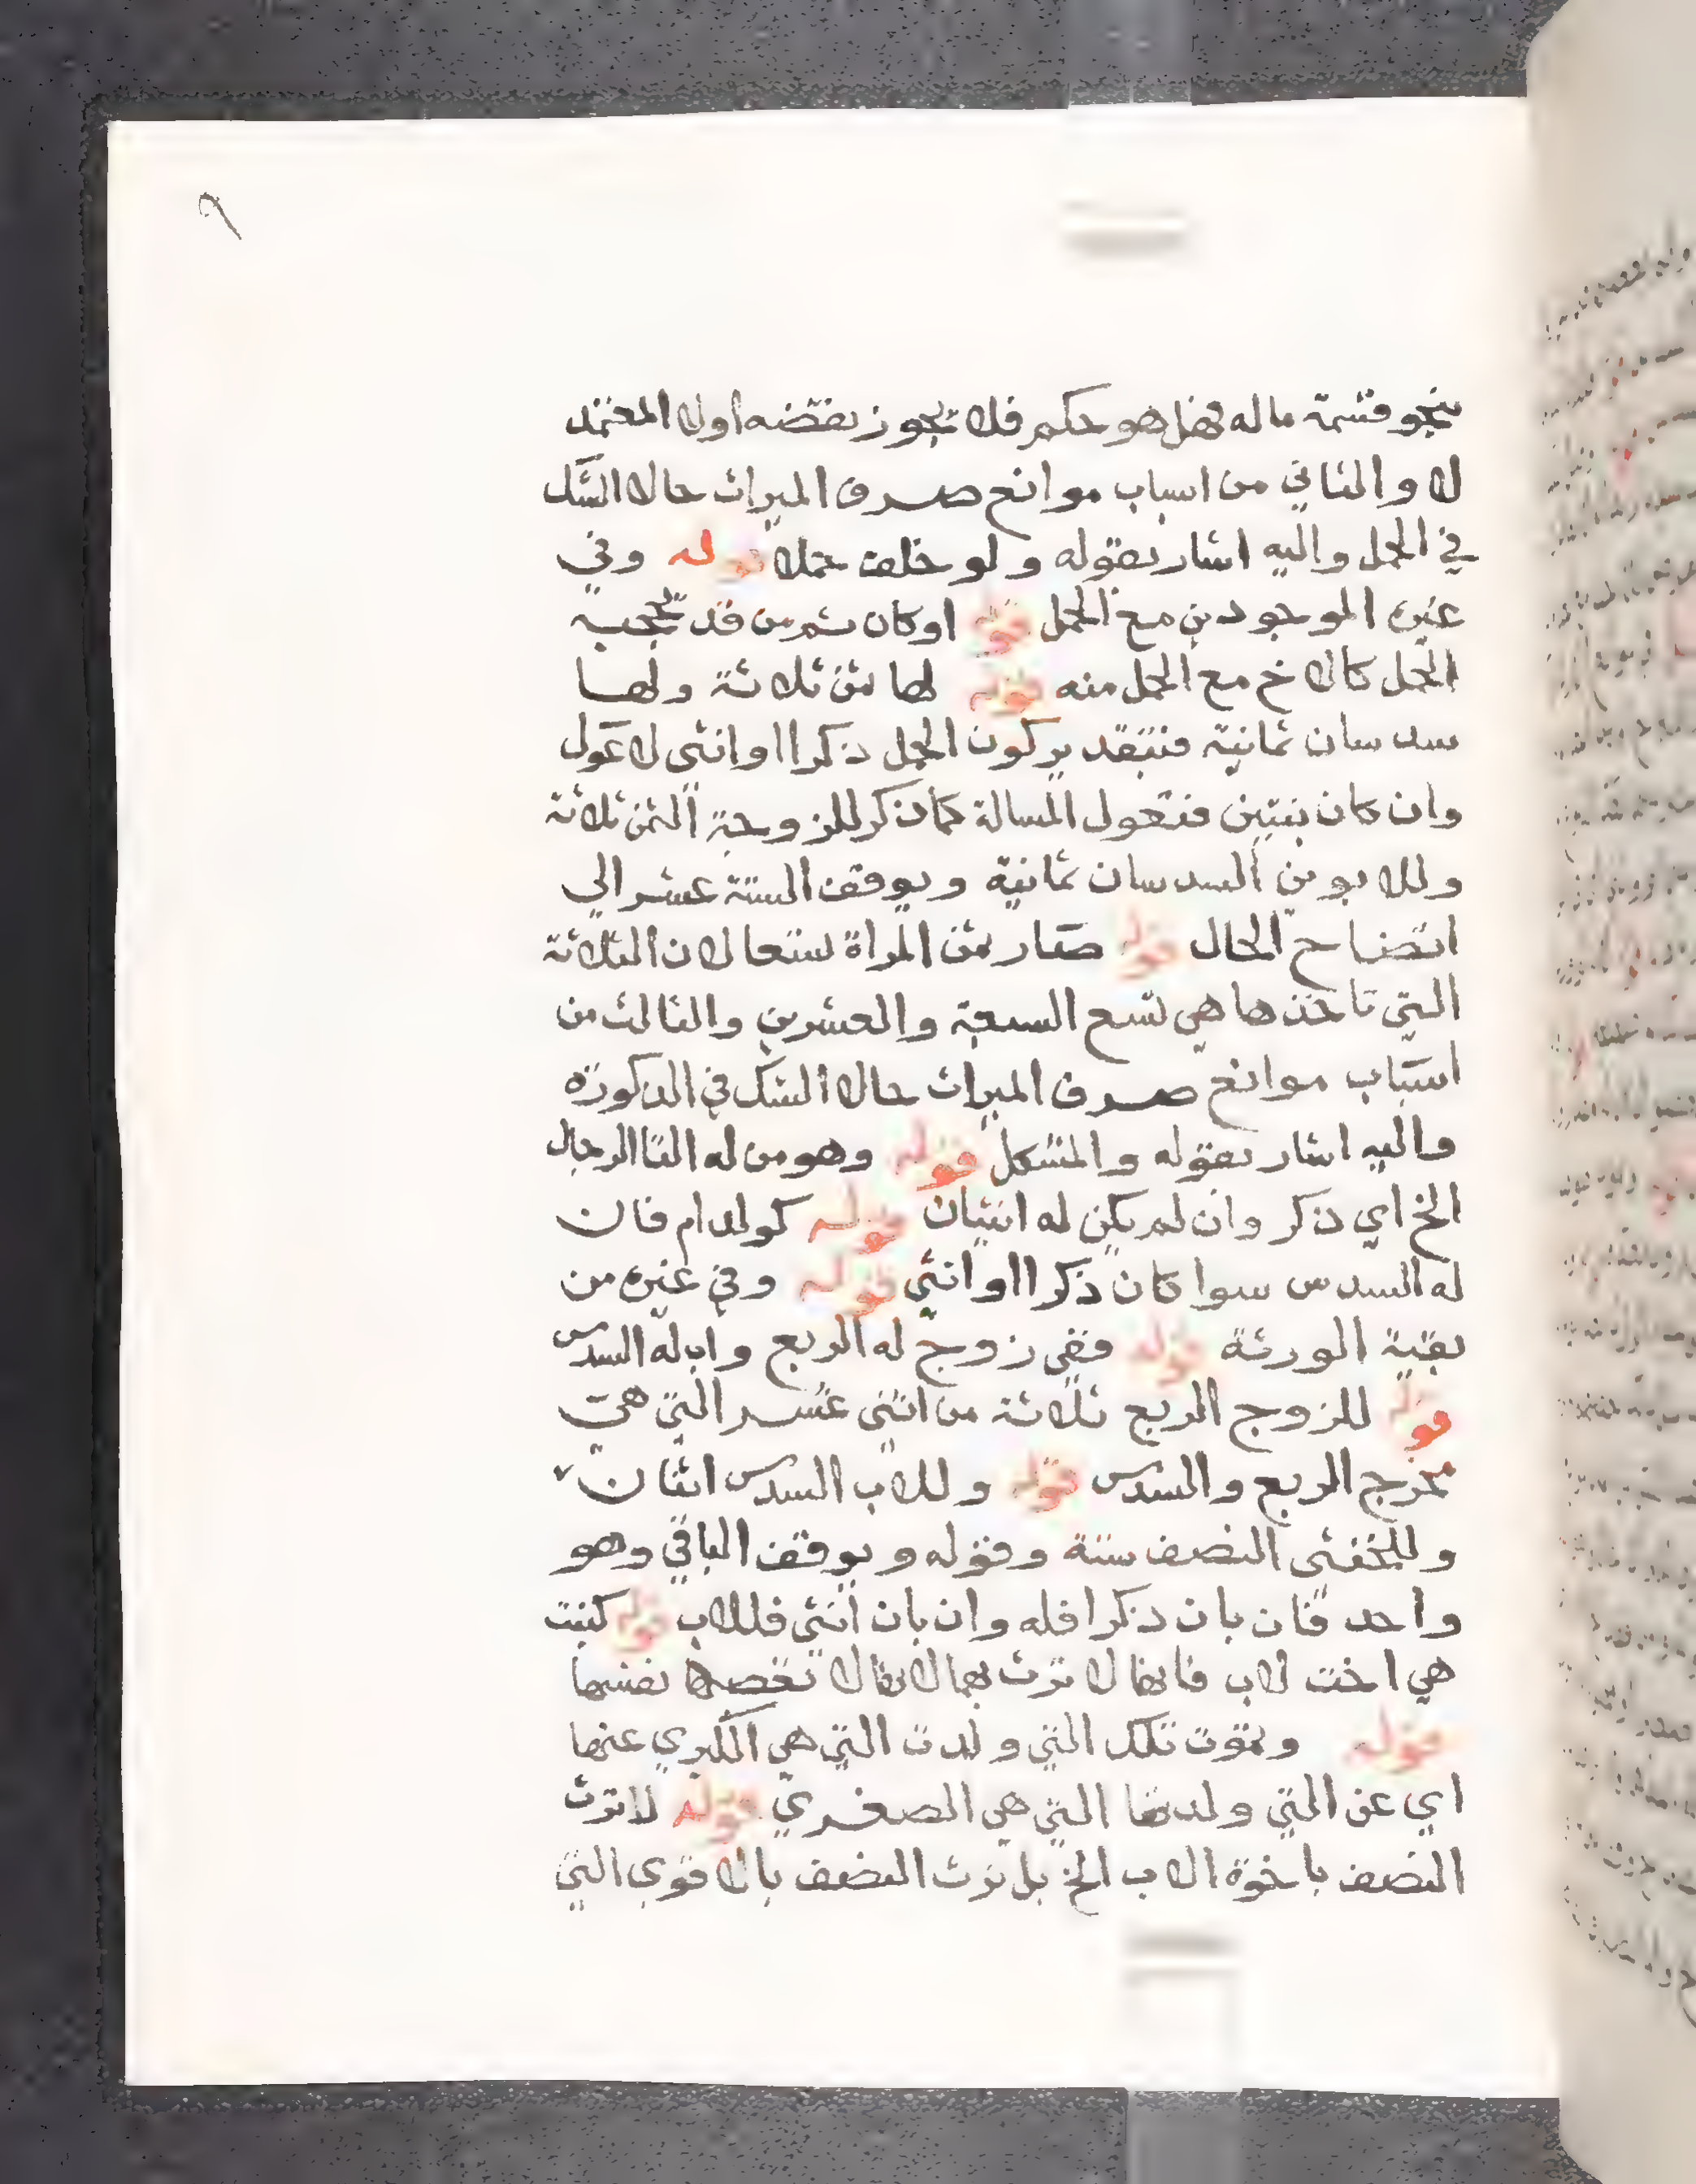 ٩
بنحو قسمة ماله فهل هو حكم فلا يجوز نقضه اولا المعتمد
لا والثاني من اسباب موانع صرف الميراث حالا الشك
في الحمل واليه اشار بقوله ولو خلف حملا قوله وفي
غيره الموجودين مع الحمل قوله اوكان ثم من قد يحجبه
الحمل كالاخ مع الحمل منه قوله لها ثمن ثلاثة ولهما
سدسان ثمانية فبتقدير كون الحمل ذكرا اوانثى لا عول
وان كان بنتين فتعول المسالة كما ذكر للزوجة الثمن ثلاثة
وللابوين السدسان ثمانية ويوقف الستة عشر الي
اتضاح الحال قوله صار ثمن المراة تسعا لان الثلاثة
التي تاخذها هي تسع السبعة والعشرين والثالث من
اسباب موانع صرف الميراث حالا الشك في الذكورة
واليه اشار بقوله والمشكل قوله وهو من له التا الرجال
الخ اي ذكر وان لم يكن له انثيان قوله كولد ام فان
له السدس سوا كان ذكرا اوانثى قوله وفي غيره من
بقية الورثة قوله ففي زوج له الربع واب له السدس
قوله للزوج الربع ثلاثة من اثنى عشر التي هي
مخرج الربع والسدس قوله وللاب السدس اثنان
وللخنثى النصف ستة وقوله ويوقف الباقي وهو
واحد فان بان ذكرا فله وان بان انثى فللاب قوله كبنت
هي اخت لاب فانها لا ترث بهما لا يقال نفسها
قوله وتموت تلك التي ولدت التي هي الكبري عنها
اي عن التي ولدتها التي هي الصغري قوله لا ترث
النصف باخوة الاب الخ بل ترث النصف بالاقوى التي